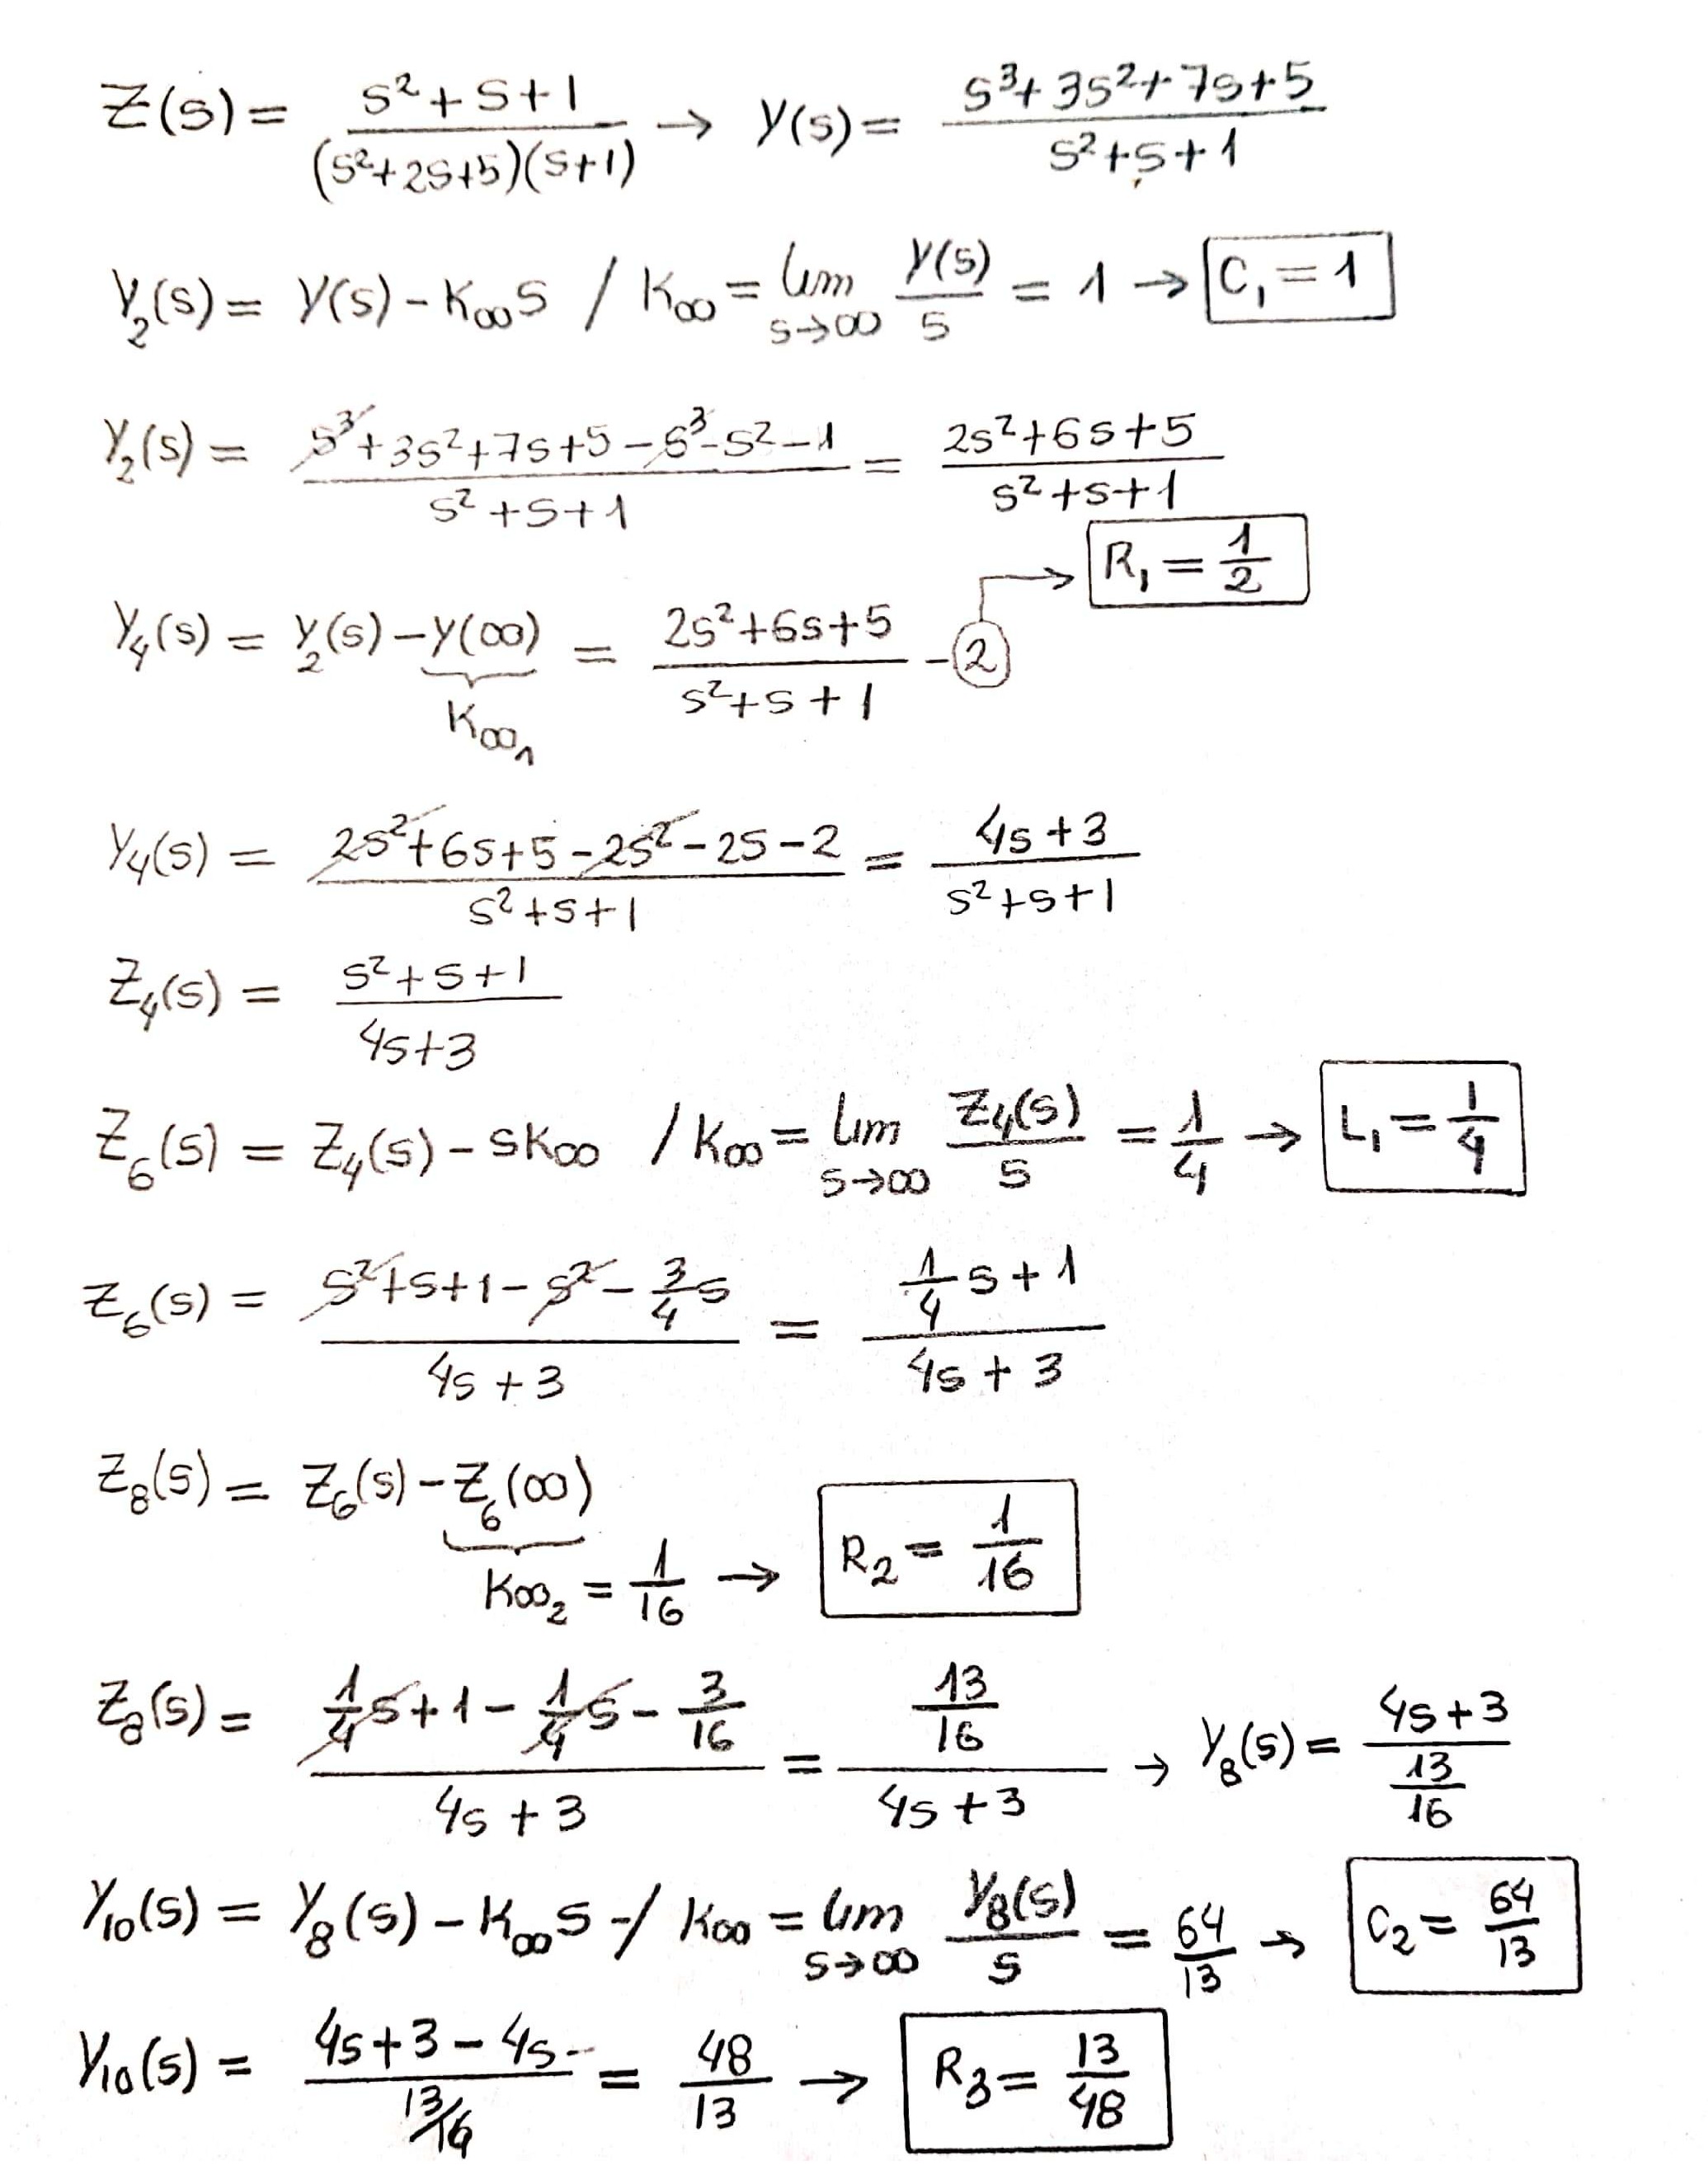 Z(s) = (s²+s+1)/((s²+2s+5)(s+1)) → Y(s) = (s³+3s²+7s+5)/(s²+s+1)
Y₂(s) = Y(s) - K∞s / K∞ = lim s→∞ Y(s)/s = 1 → C₁ = 1
Y₂(s) = (s³+3s²+7s+5-s³-s²-1)/(s²+s+1) = (2s²+6s+5)/(s²+s+1)
R₁ = 1/2
Y₄(s) = Y₂(s) - Y(∞) = (2s²+6s+5)/(s²+s+1) - 2
K∞₁
Y₄(s) = (2s²+6s+5-2s²-2s-2)/(s²+s+1) = (4s+3)/(s²+s+1)
Z₄(s) = (s²+s+1)/(4s+3)
Z₆(s) = Z₄(s) - sK∞ / K∞ = lim s→∞ Z₄(s)/s = 1/4 → L₁ = 1/4
Z₆(s) = (s²+s+1-s²-3/4s)/(4s+3) = (1/4s+1)/(4s+3)
Z₈(s) = Z₆(s) - Z₆(∞)
K∞₂ = 1/16 → R₂ = 1/16
Z₈(s) = (1/4s+1-1/4s-3/16)/(4s+3) = (13/16)/(4s+3) → Y₈(s) = (4s+3)/(13/16)
Y₁₀(s) = Y₈(s) - K∞s / K∞ = lim s→∞ Y₈(s)/s = 64/13 → C₂ = 64/13
Y₁₀(s) = (4s+3-4s)/(13/16) = 48/13 → R₃ = 13/48